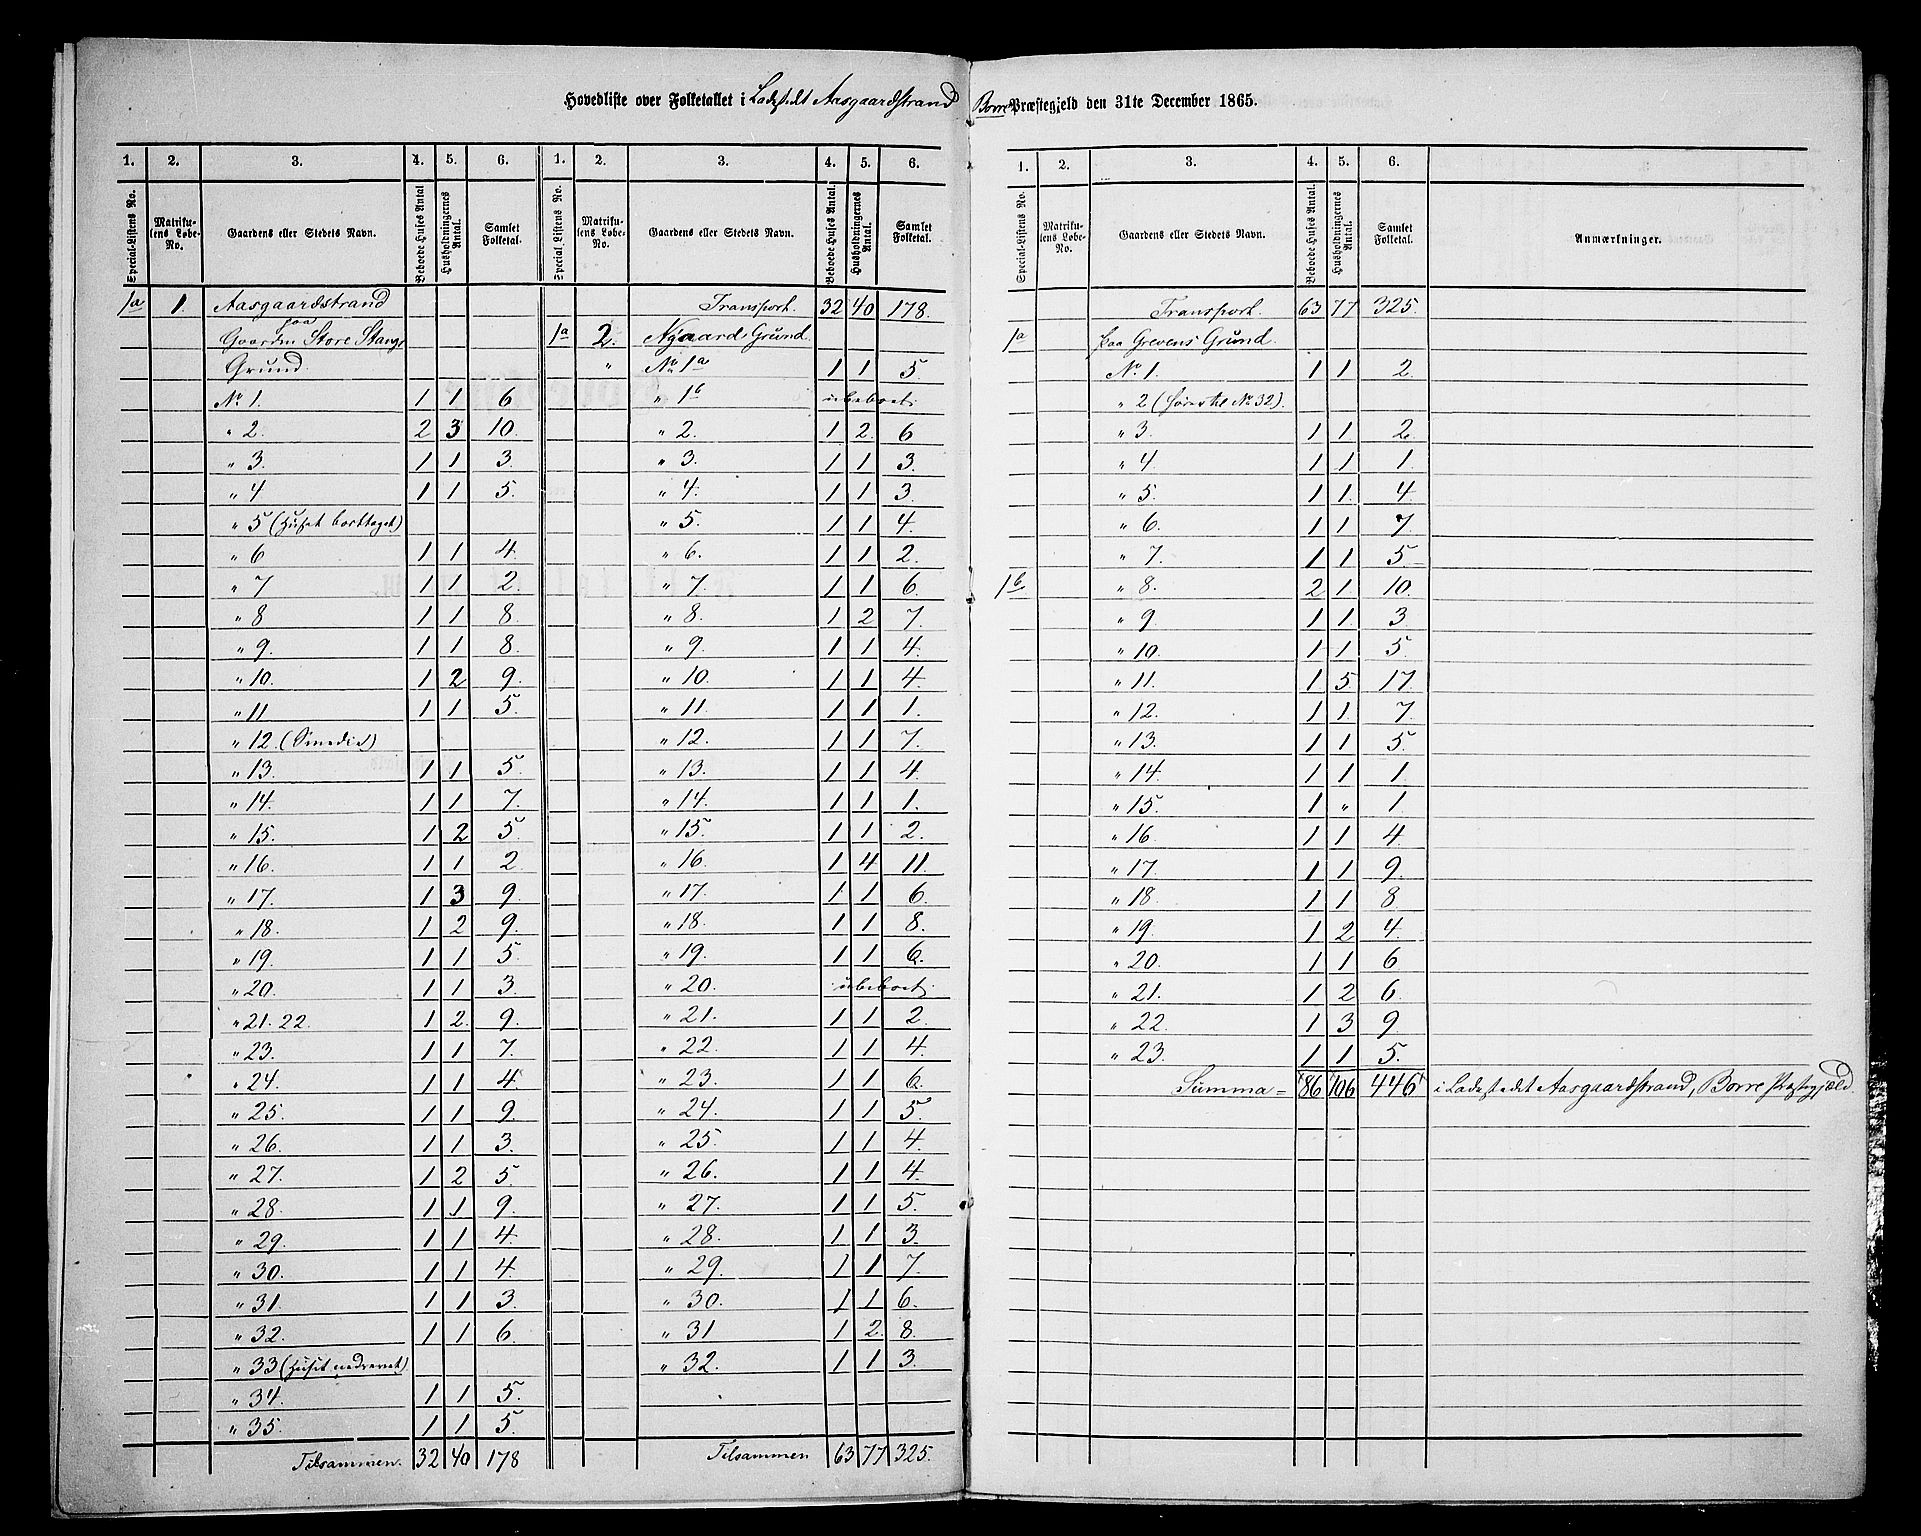 Hovedliste over Folketallet i Ladestedet Aasgaardstrand Borre Præstegjeld den 31te December 1865.
1. 2. 3. 4. 5. 6. 1. 2. 3. 4. 5. 6.
Special-Listens No. Matrikulens Løbe-No. Gaardens eller Stedets Navn. Beboede Huses Antal Husholdningernes Antal. Samlet Folketal. Special Listens No. Matrikulens Løbe-No. Gaardens eller Stedets Navn. Beboede Huses Antal. Husholdningernes Antal. Samlet Folketal.
1a 1. Aasgaardstrand Transport. 32 40 178.
paa
Gaarden Store Stangs 1a 2. Nygaards Grund.
Grund. " No 1a 1 1 5.
No 1. 1 1 6 " 1b ubeboet.
" 2. 2 3 10. " 2. 1 2. 6
" 3. 1 1 3. " 3. 1 1 3.
" 4 1 1 5. " 4. 1 1 3.
" 5 (Huset borttaget) " 5. 1 1 4.
" 6 1 1 4. " 6. 1 1 2.
" 7 1 1 2. " 7. 1 1 6
" 8 1 1 8. " 8. 1 2 7.
" 9. 1 1 8 " 9. 1 1 4.
" 10. 1 2 9. " 10. 1 1 4.
" 11 1 1 5. " 11. 1 1 1.
" 12. (Smedie) " 12. 1 1 7.
" 13. 1 1 5. " 13. 1 1 4.
" 14. 1 1 7. " 14. 1 1 1.
" 15. 1 2 5. " 15. 1 1 2.
" 16. 1 1 2 " 16. 1 4 11.
" 17. 1 3 9. " 17. 1 1 6.
" 18. 1 2 9. " 18. 1 1 8.
" 19. 1 1 5. " 19. 1 1 6.
" 20. 1 1 3. " 20. ubeboet.
" 21. 22. 1 2. 9. " 21. 1 1 2.
" 23. 1 1 7. " 22. 1 1 4.
" 24. 1 1 4. " 23. 1 1 6.
" 25. 1 1 9. " 24. 1 1 5.
" 26. 1 1 3. " 25. 1 1 4.
" 27. 1 2 5. " 26. 1 1 4.
" 28. 1 1 9. " 27. 1 1 5.
" 29. 1 1 4. " 28. 1 1 3.
" 30. 1 1 4. " 29. 1 1 7.
" 31. 1 1 3. " 30. 1 1 6.
" 32. 1 1 6. " 31 1 2. 8.
" 33 (Huset nedrevet) " 32. 1 1 3.
" 34. 1 1 5.
" 35. 1 1 5.
Tilsammen. 32 40 178 Tilsammen 63 77 325.
1. 2. 3. 4. 5. 6.
Special-Listens No. Matrikulens Løbe-No. Gaardens eller Stedets Navn. Beboede Huses Antal. Husholdningernes Antal. Samlet Folketal. Anmærkninger.
Transport. 63 77 325.
1a paa Grevens Grund.
No 1. 1 1 2.
" 2 ( No 32).
" 3. 1 1 2.
" 4 1 1 1.
" 5. 1 1. 4
" 6. 1 1 7.
" 7. 1 1 5
1b " 8. 2 1 10.
" 9 1 1 3.
" 10. 1 1 5.
" 11. 1. 5. 17.
" 12. 1 1. 7.
" 13. 1 1 5.
" 14. 1 1 1.
" 15. 1 " 1.
" 16 1 1 4
" 17. 1 1 9.
" 18 1 1 8
" 19. 1 2 4.
" 20. 1 1 6
" 21. 1 2 6.
" 22. 1 3 9
" 23. 1 1 5.
Summa = 86 106 446 i Ladestedet Aasgaardstrand, Borre Præstegjeld.